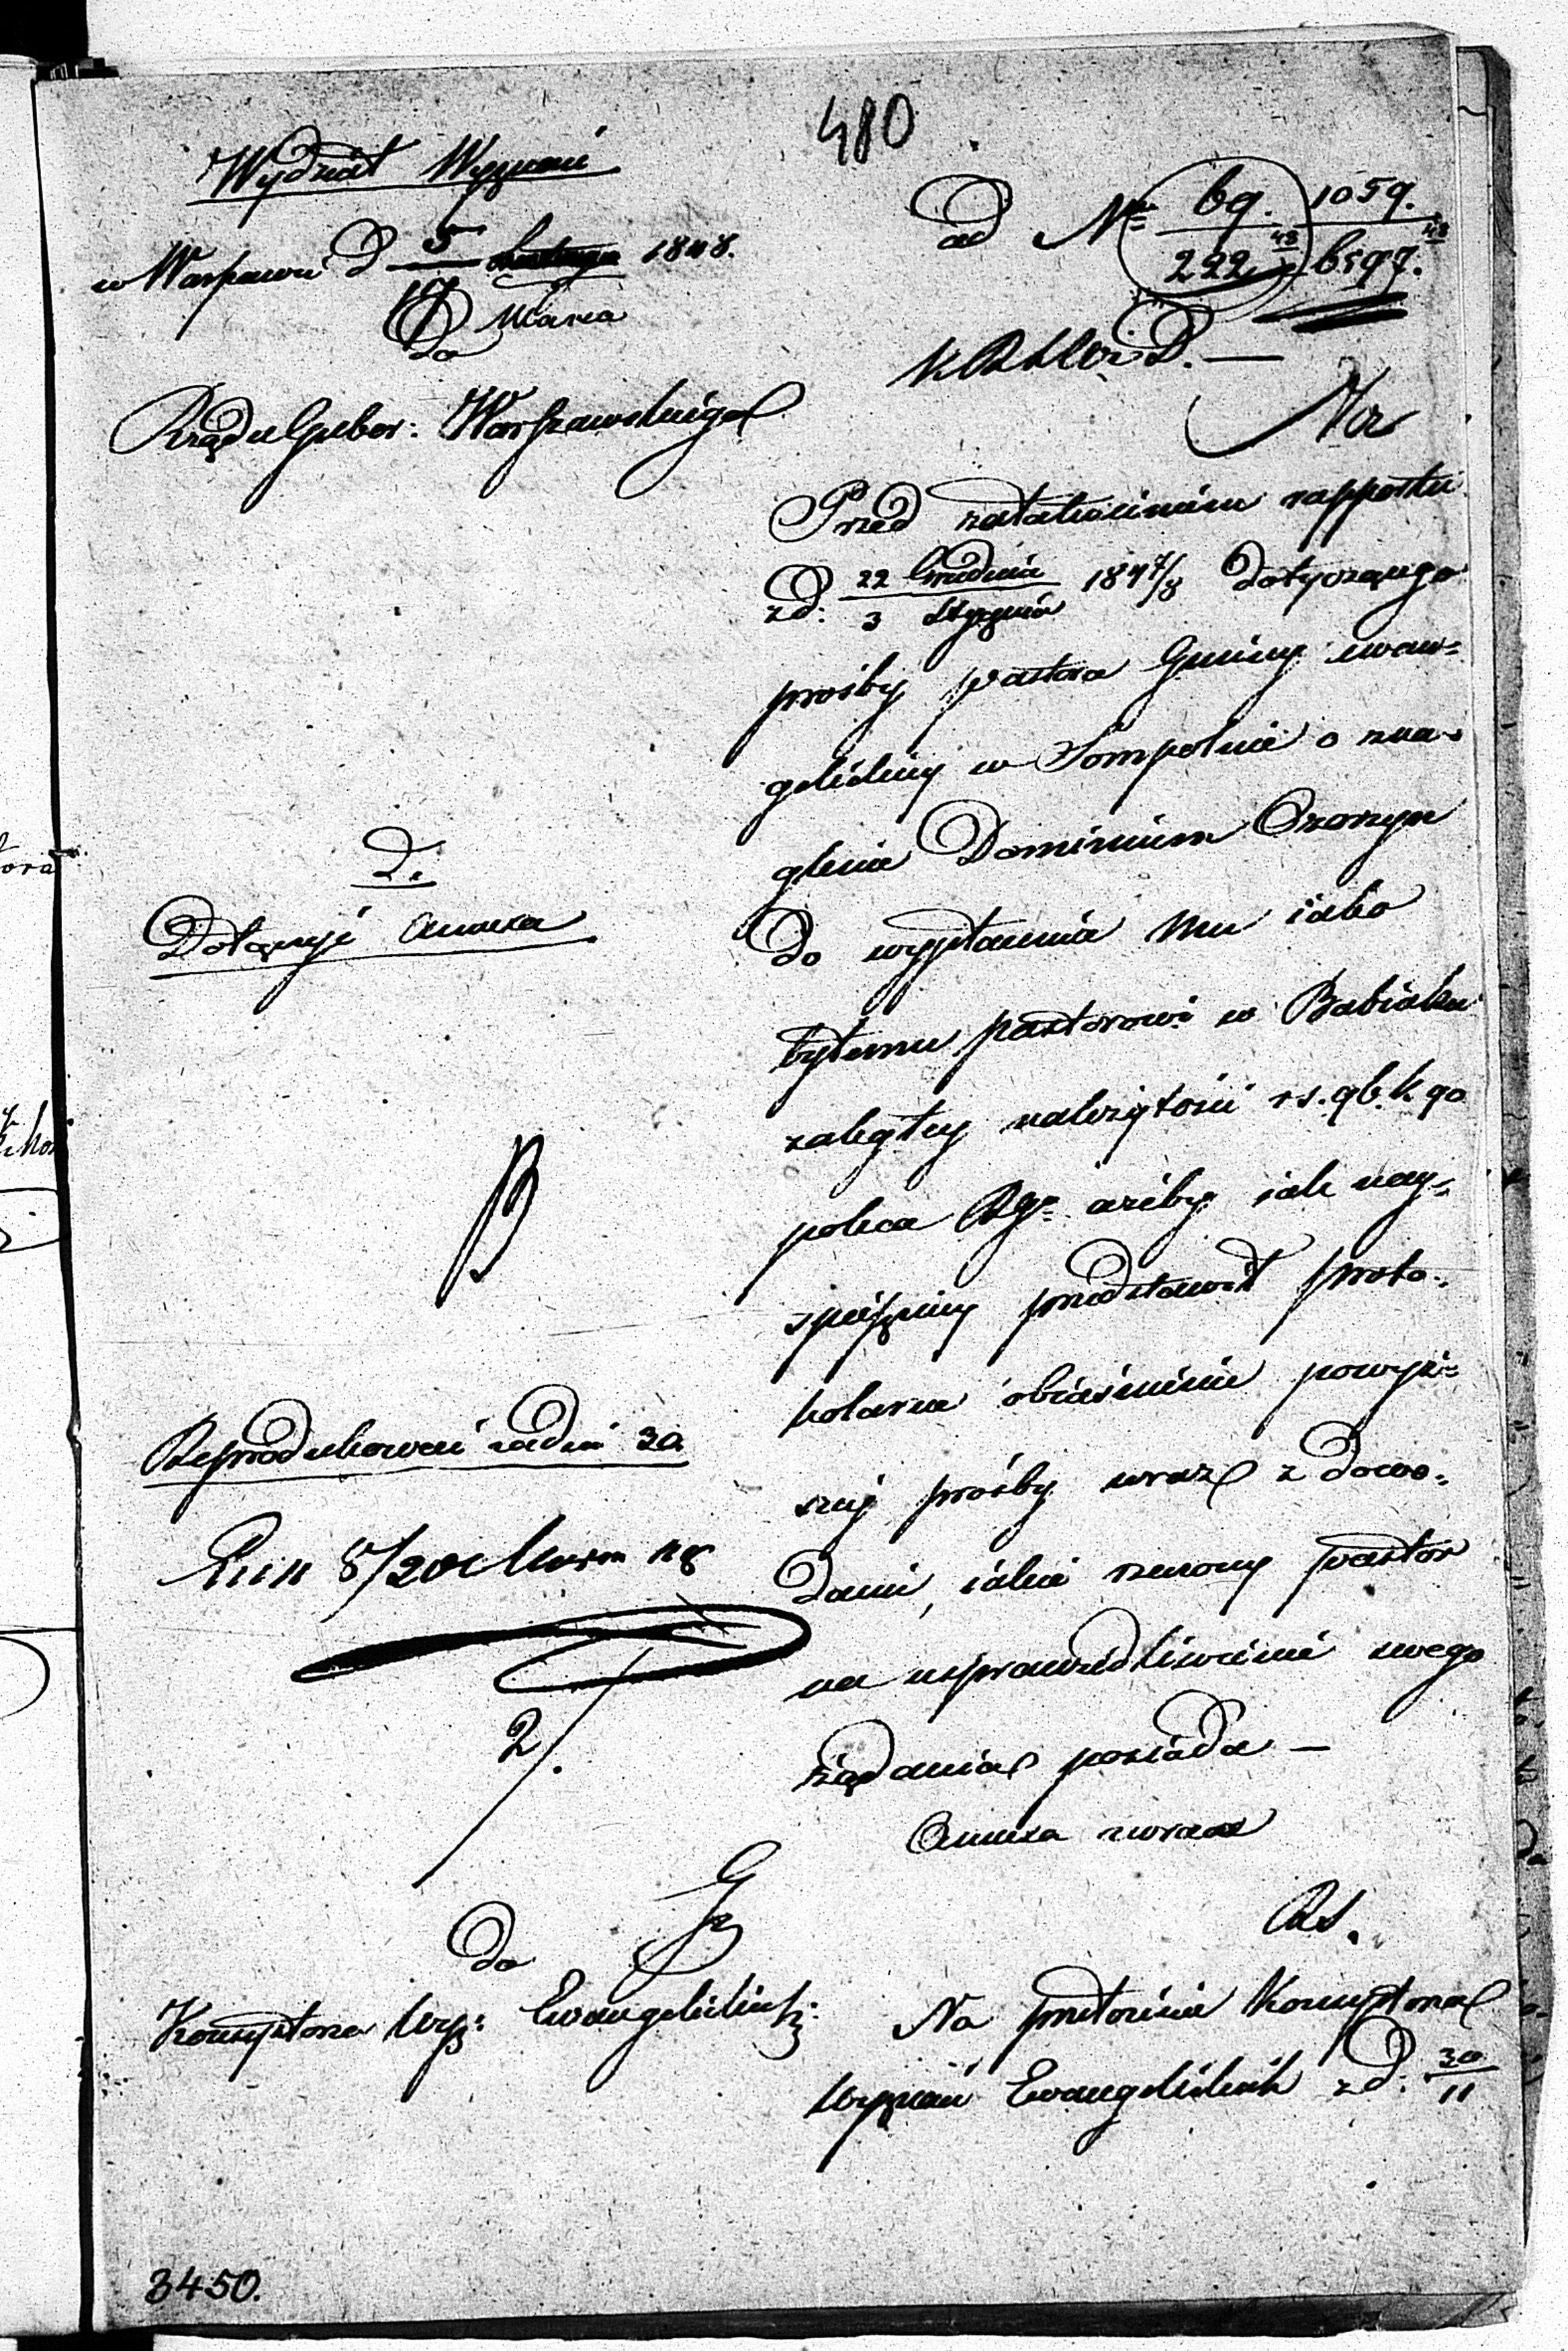 480
Wydział Wyznań
w Warszawie d 5/17 Marca 1848.
ad Nr 69. 1059.
222/48 6597/48
Do
Rządu Guber: Warszawskiego
Przed załatwieniem rapportu
z d: 22 Grudnia / 3 Stycznia 1847/8 dotyczącego
prośby pastora Gminy ewan=
gelickiej w Sompolnie o zna=
glenie Dominium
do wypłacenia mu iako
byłemu pastorowi w Babiaku
zaległej należytości rs. 96 k 90
poleca Rg. ażeby iak nay=
spieszniey przedstawił proto=
kolarne obiaśnienie powyż=
szej prośby wraz z dowo=
dami, iakie rzeczony pastor
na usprawiedliwienie swego
żądania posiada —
Annexa zwraca
D.
Dołączyć annexa
Reprodukować za dni 30
8/20 48
2/.
Do
Konsystorza Wyz: Ewangelickich
Na przełożenie Konsystorza
Wyznań Ewangelickich z d: 30/11
3450.